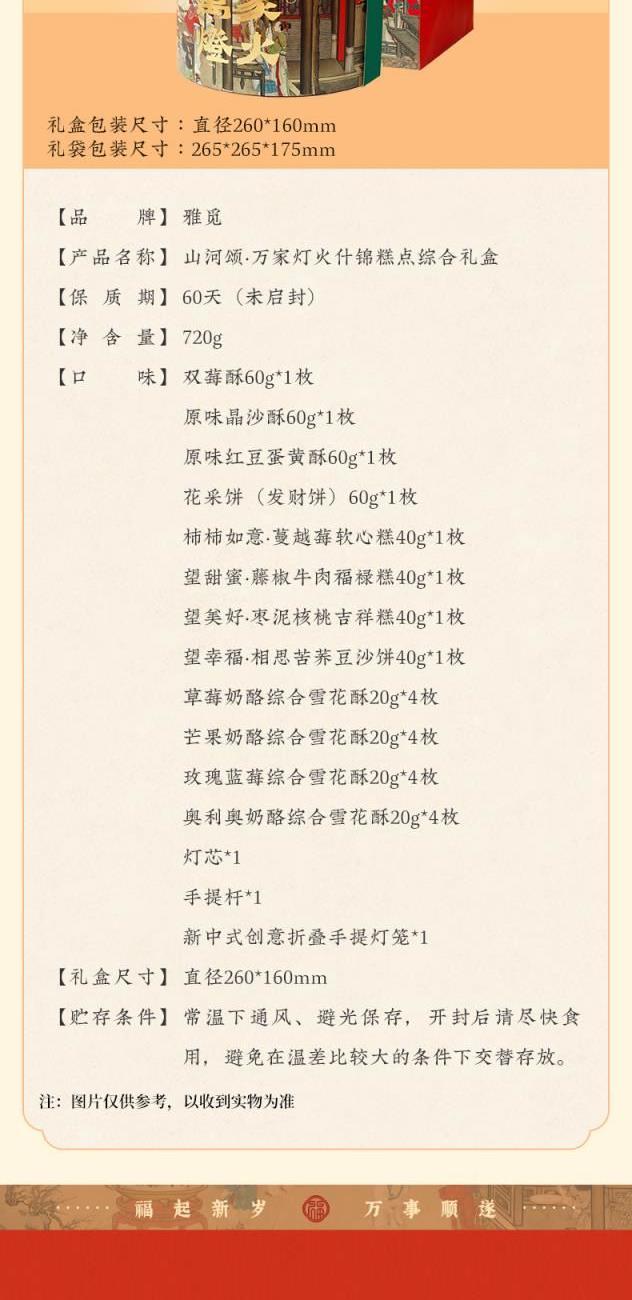 萬家
燈火
礼盒包装尺寸：直径260*160mm
礼袋包装尺寸：265*265*175mm
【品 牌】雅觅
【产品名称】山河颂·万家灯火什锦糕点综合礼盒
【保 质 期】60天（未启封）
【净 含 量】720g
【口 味】双莓酥60g*1枚
原味晶沙酥60g*1枚
原味红豆蛋黄酥60g*1枚
花采饼（发财饼）60g*1枚
柿柿如意·蔓越莓软心糕40g*1枚
望甜蜜·藤椒牛肉福禄糕40g*1枚
望美好·枣泥核桃吉祥糕40g*1枚
望幸福·相思苦荞豆沙饼40g*1枚
草莓奶酪综合雪花酥20g*4枚
芒果奶酪综合雪花酥20g*4枚
玫瑰蓝莓综合雪花酥20g*4枚
奥利奥奶酪综合雪花酥20g*4枚
灯芯*1
手提杆*1
新中式创意折叠手提灯笼*1
【礼盒尺寸】直径260*160mm
【贮存条件】常温下通风、避光保存，开封后请尽快食
用，避免在温差比较大的条件下交替存放。
注：图片仅供参考，以收到实物为准
······福起新岁 福 万事顺遂······